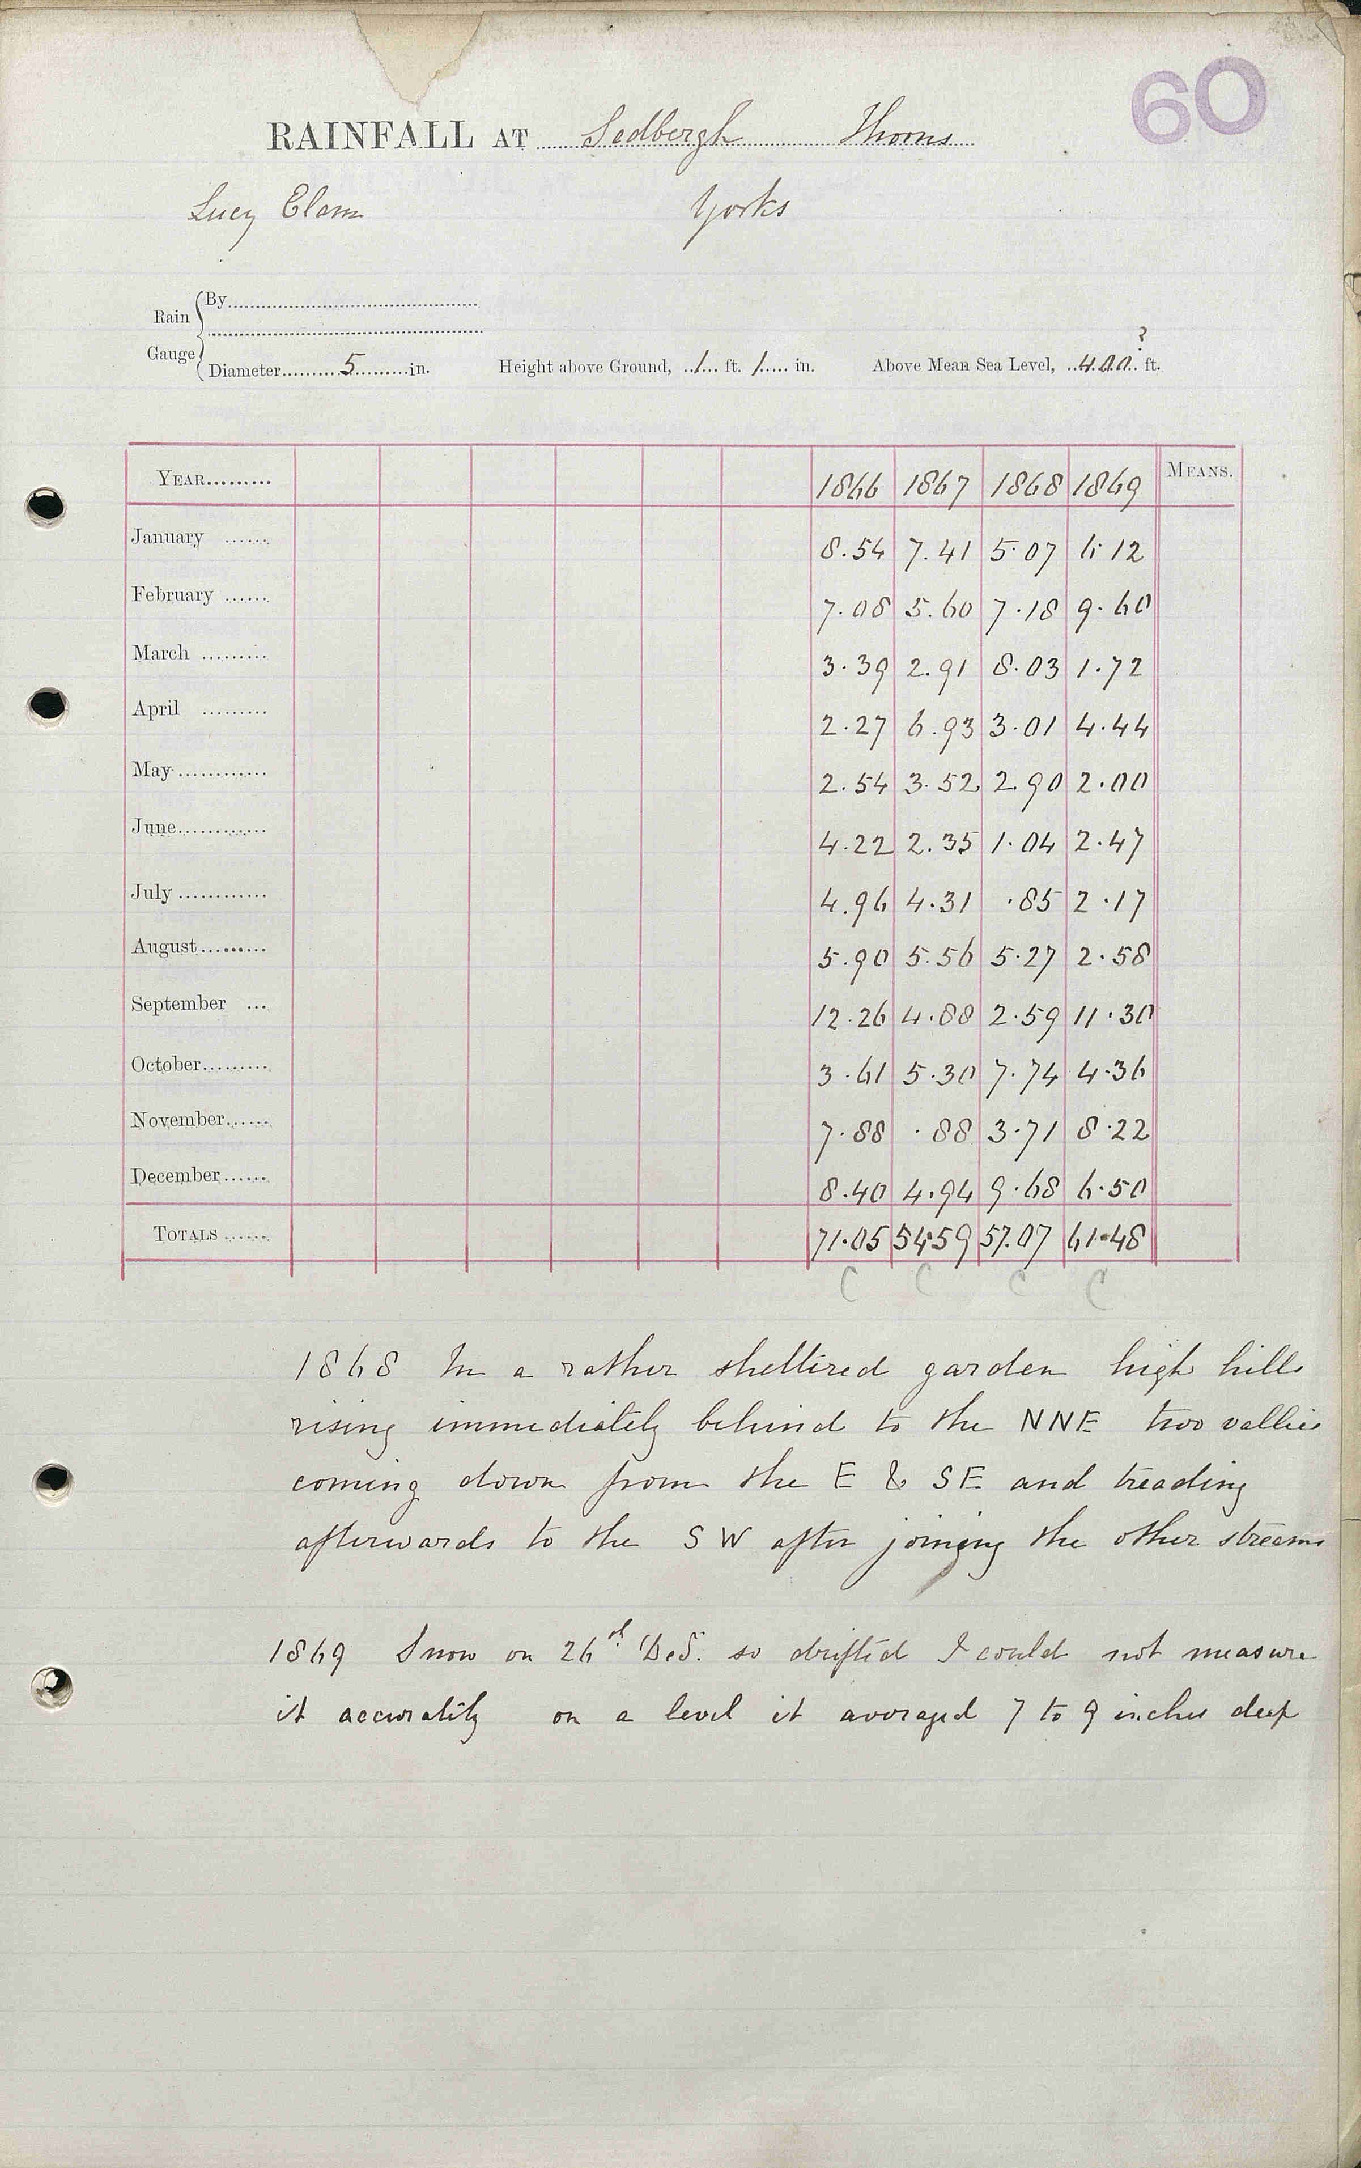 60
RAINFALL AT Sedbergh Thorns
Lucy Elam Yorks
Rain Gauge
By
Diameter 5 in. Height above Ground, 1 ft. 1 in. Above Mean Sea Level, 400 ? ft.
YEAR 1866 1867 1868 1869 MEANS.
January 8.54 7.41 5.07 6.12
February 7.08 5.60 7.18 9.60
March 3.39 2.91 8.03 1.72
April 2.27 6.93 3.01 4.44
May 2.54 3.52 2.90 2.00
June 4.22 2.35 1.04 2.47
July 4.96 4.31 .85 2.17
August 5.90 5.56 5.27 2.58
September 12.26 4.88 2.59 11.30
October 3.61 5.30 7.74 4.36
November 7.88 .88 3.71 8.22
December 8.40 4.94 9.68 6.50
TOTALS 71.05 54.59 57.07 61.48
C C C C
1868 In a rather sheltered garden high hills
rising immediately behind to the NNE two vallies
coming down from the E & SE and treading
afterwards to the SW after joining the other streams
1869 Snow on 26 so drifted I could not measure
it accurately on a level it averaged 7 to 9 inches deep